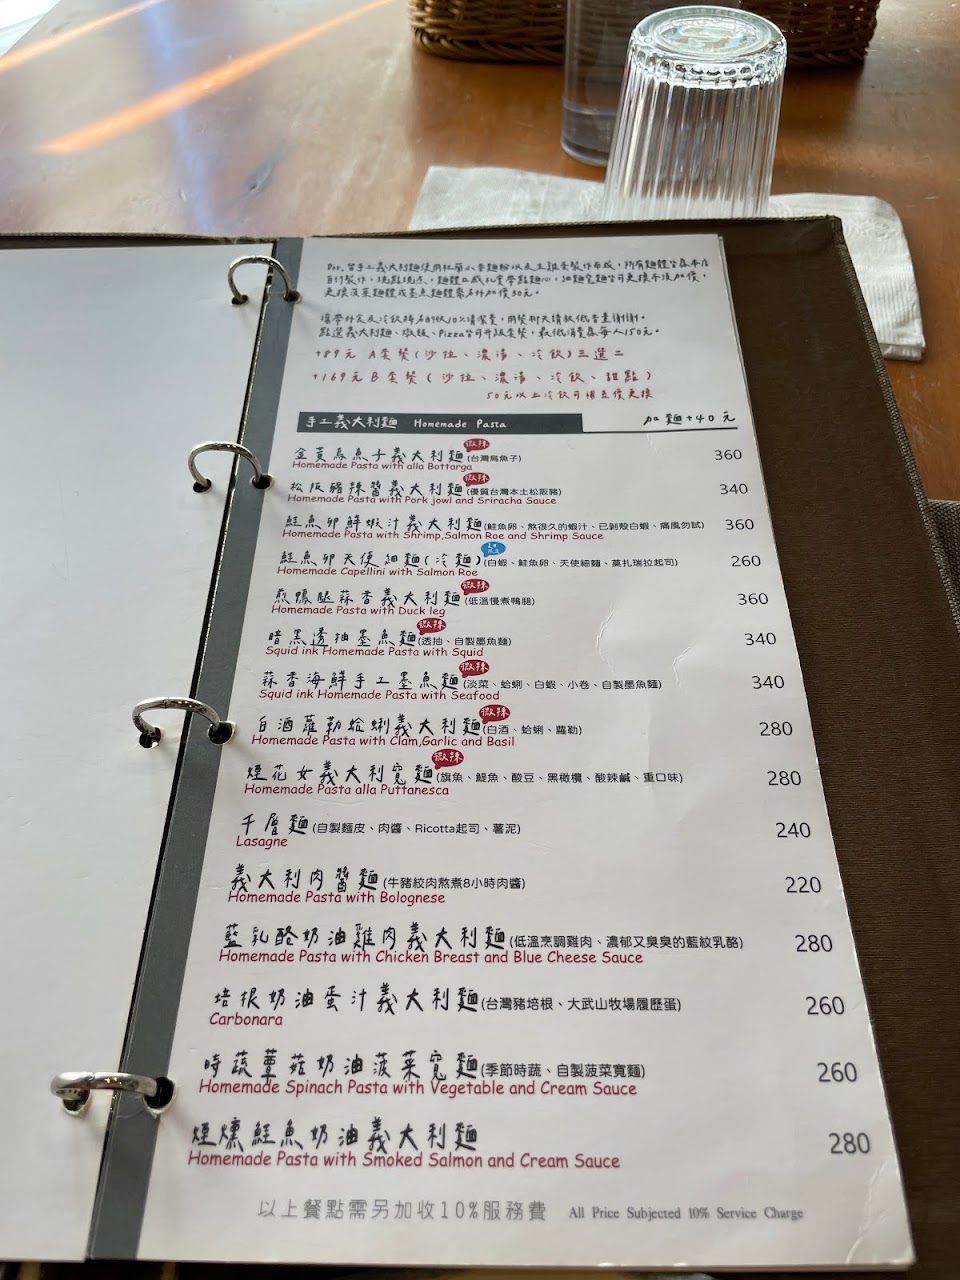 Dear, 當手工義大利麵使用杜蘭小麥麵粉以及土雞蛋製作而成，所有麵體皆為本店
自行製作，現點現煮，麵體口感扎實帶點麵心，細麵寬麵皆可更換不須加價，
更換菠菜麵體或墨魚麵體需另外加價30元。
攜帶外食及冷飲將另酌收10%清潔費，用餐聊天請放低音量謝謝。
點選義大利麵、燉飯、Pizza皆可升級套餐，最低消費為每人150元。
+89元 A套餐(沙拉、濃湯、冷飲)三選二
+169元 B套餐(沙拉、濃湯、冷飲、甜點)
50元以上冷飲可補差價更換
手工義大利麵 Homemade Pasta 加麵+40元
微辣
金黃烏魚子義大利麵(台灣烏魚子) 360
Homemade Pasta with alla Bottarga
微辣
松阪豬辣醬義大利麵(優質台灣本土松阪豬) 340
Homemade Pasta with Pork jowl and Sriracha Sauce
鮭魚卵鮮蝦汁義大利麵(鮭魚卵、熬很久的蝦汁、已剝殼白蝦、痛風勿試) 360
Homemade Pasta with Shrimp,Salmon Roe and Shrimp Sauce
鮭魚卵天使細麵(冷麵)(白蝦、鮭魚卵、天使細麵、莫扎瑞拉起司) 260
Homemade Capellini with Salmon Roe
微辣
煎鴨腿蒜香義大利麵(低溫慢煮鴨腿) 360
Homemade Pasta with Duck leg
微辣
暗黑透抽墨魚麵(透抽、自製墨魚麵) 340
Squid ink Homemade Pasta with Squid
微辣
蒜香海鮮手工墨魚麵(淡菜、蛤蜊、白蝦、小卷、自製墨魚麵) 340
Squid ink Homemade Pasta with Seafood
微辣
白酒蘿勒蛤蜊義大利麵(白酒、蛤蜊、蘿勒) 280
Homemade Pasta with Clam,Garlic and Basil
微辣
煙花女義大利寬麵(旗魚、鯷魚、酸豆、黑橄欖、酸辣鹹、重口味) 280
Homemade Pasta alla Puttanesca
千層麵(自製麵皮、肉醬、Ricotta起司、薯泥) 240
Lasagne
義大利肉醬麵(牛豬絞肉熬煮8小時肉醬) 220
Homemade Pasta with Bolognese
藍乳酪奶油雞肉義大利麵(低溫烹調雞肉、濃郁又臭臭的藍紋乳酪) 280
Homemade Pasta with Chicken Breast and Blue Cheese Sauce
培根奶油蛋汁義大利麵(台灣豬培根、大武山牧場履歷蛋) 260
Carbonara
時蔬蕈菇奶油菠菜寬麵(季節時蔬、自製菠菜寬麵) 260
Homemade Spinach Pasta with Vegetable and Cream Sauce
煙燻鮭魚奶油義大利麵 280
Homemade Pasta with Smoked Salmon and Cream Sauce
以上餐點需另加收10%服務費 All Price Subjected 10% Service Charge